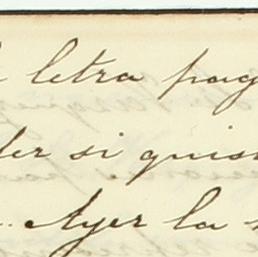 letra pag
der si quis
Ayer la